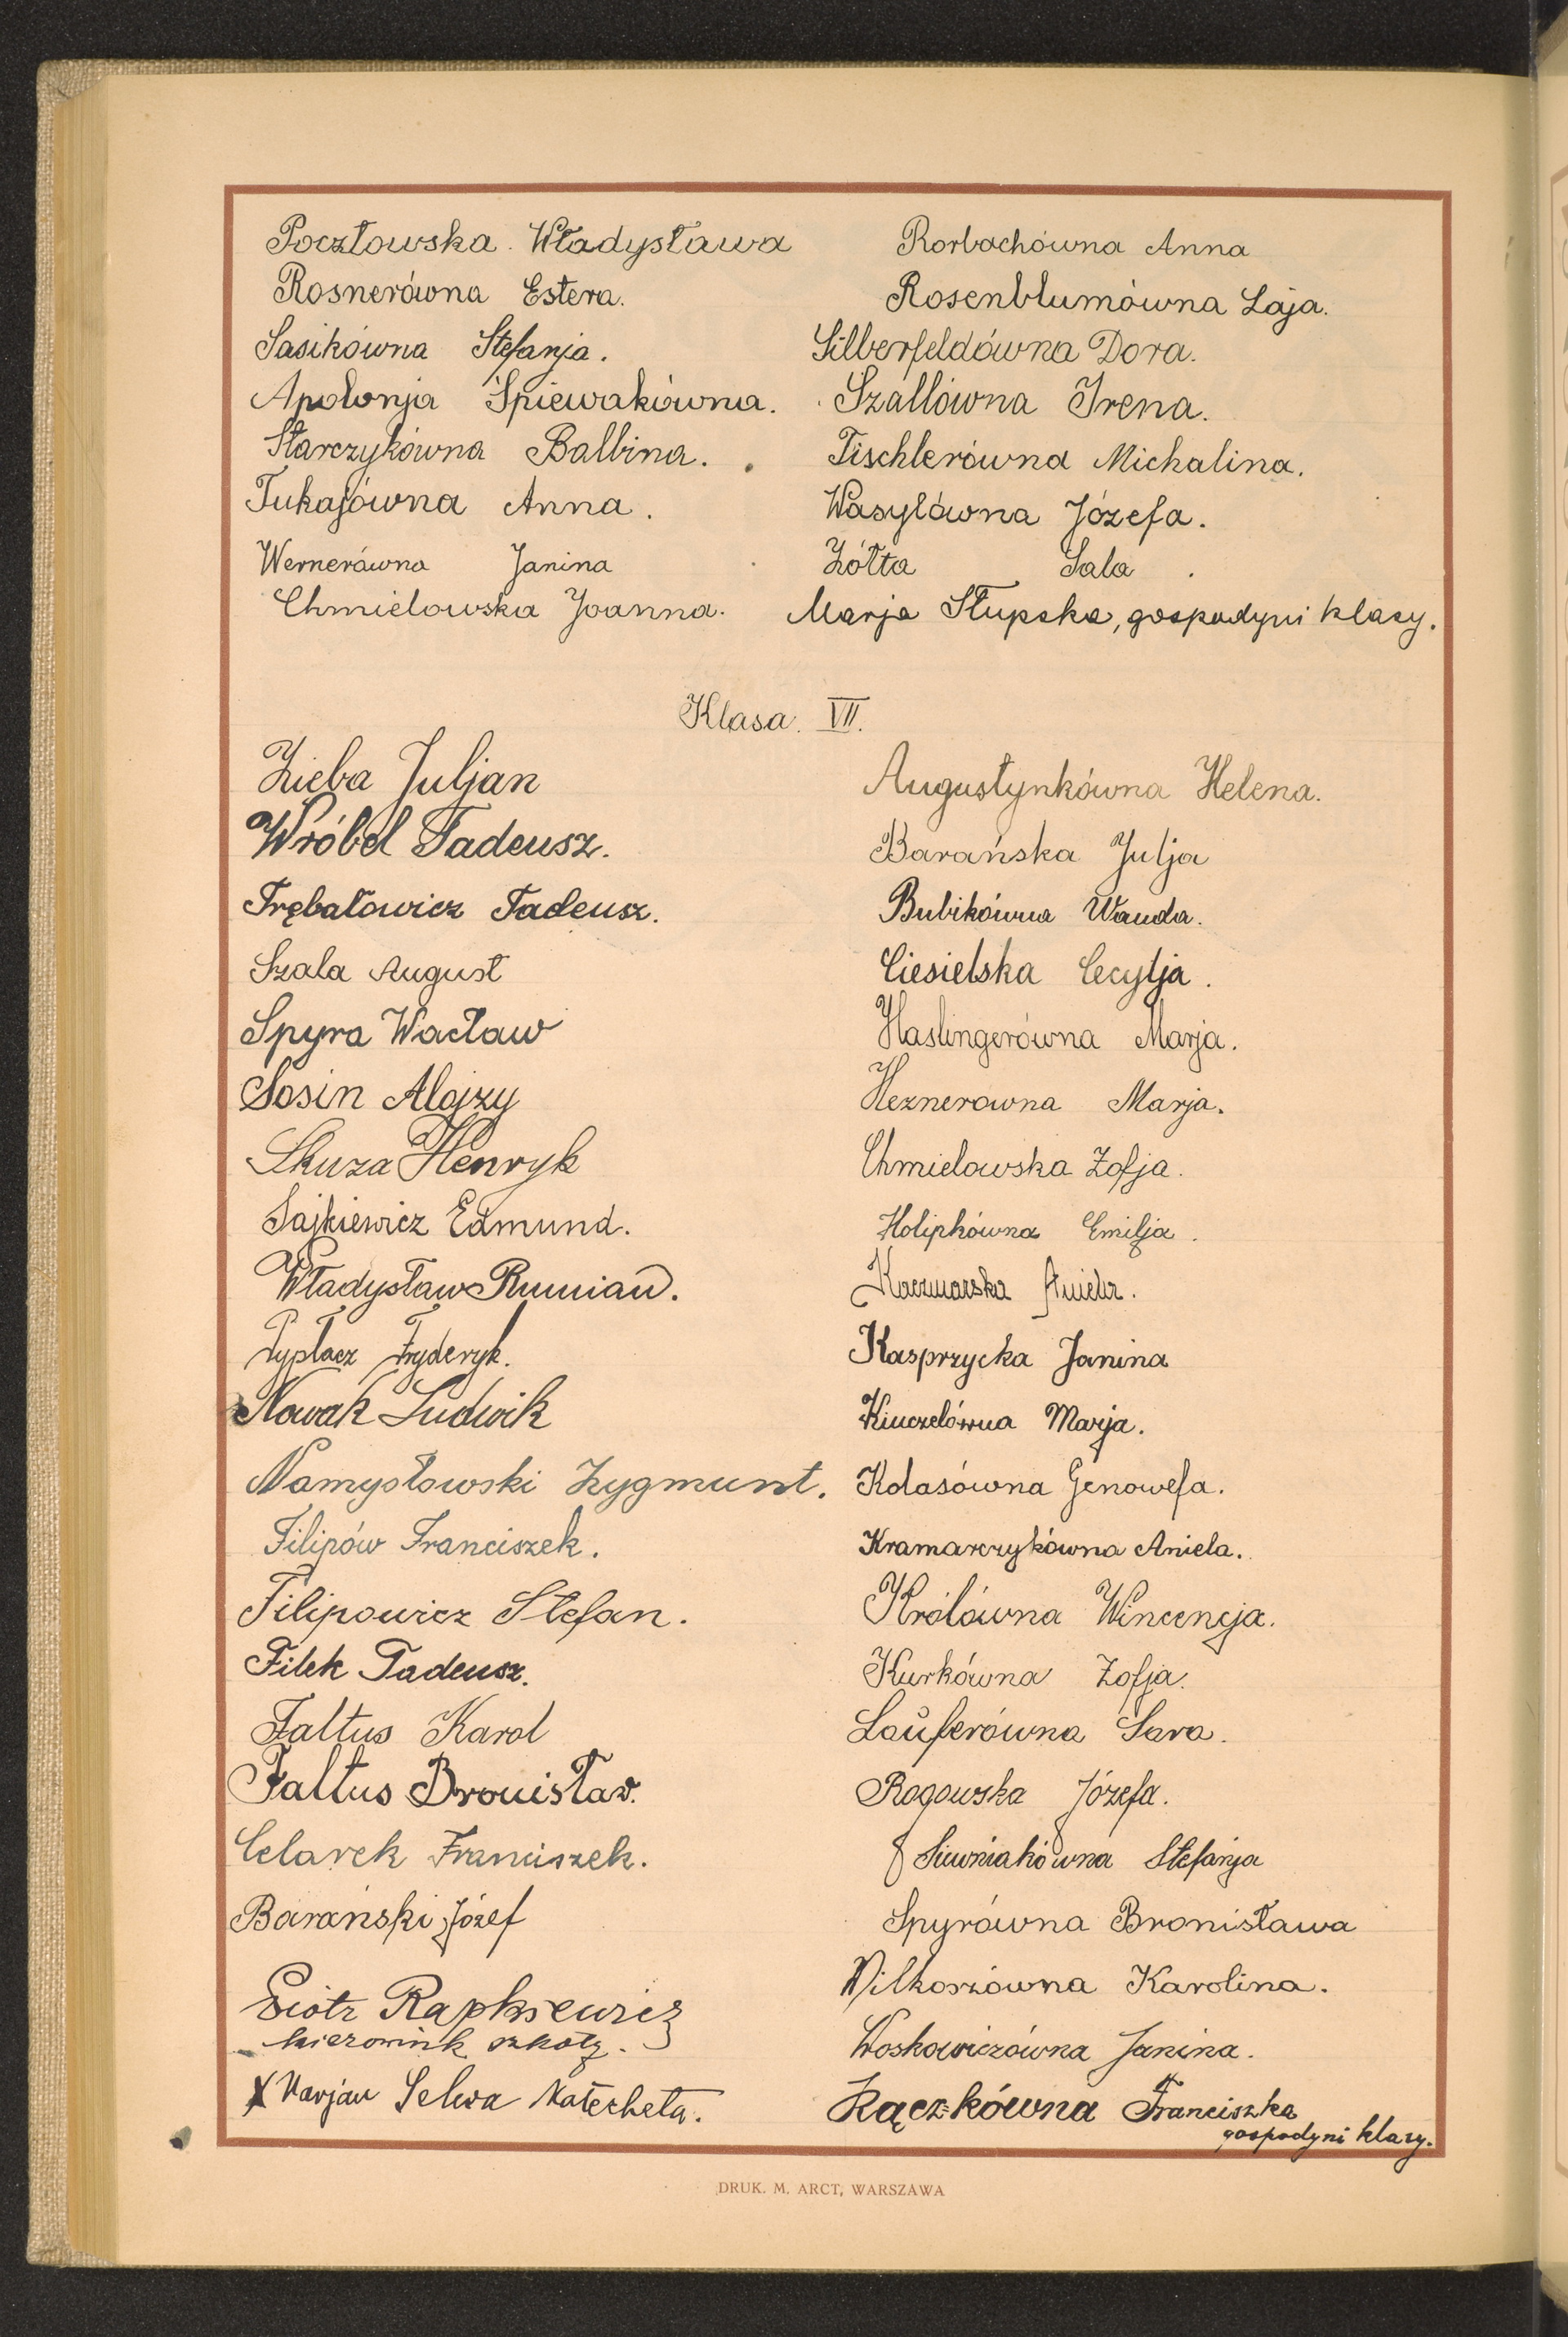 Pocztowska Władysława
Rosnerówna Estera.
Sasikówna Stefanja.
Apolonja Śpiewakówna.
Starczykówna Balbina.
Tukajówna Anna.
Wernerówna Janina
Chmielowska Joanna.
Rorbachówna Anna
Rosenblumówna Laja.
Silberfeldówna Dora.
Szallówna Irena.
Tischlerówna Michalina.
Wasylówna Józefa.
Żółta Sala.
Marja Słupska, gospodyni klasy.
Klasa. VII.
Zieba Juljan
Wróbel Tadeusz.
Trębatowicz Tadeusz.
Szala August
Spyra Wacław
Sosin Alojzy
Skuza Henryk
Sajkiewicz Edmund.
Władysław Rumian.
Pyptacz Fryderyk.
Nowak Ludwik
Namysłowski Zygmunt.
Filipów Franciszek.
Filipowicz Stefan.
Filek Tadeusz.
Faltus Karol
Faltus Bronisław.
Celarek Franciszek.
Barański Józef
Piotr Rapkiewicz
kierownik szkoły.
X Marjan Selwa Katecheta.
Augustynkówna Helena.
Barańska Julja
Bubikówna Wanda.
Ciesielska Cecylja.
Haslingerówna Marja.
Heznerowna Marja.
Chmielowska Zofja.
Holipkówna Emilja.
Kaczmarska Aniela.
Kasprzycka Janina
Kinczelówna Marja.
Kolasówna Genowefa.
Kramarczykówna Aniela.
Królówna Wincencja.
Kurkówna Zofja.
Lauferówna Sara.
Rogowska Józefa.
Siwniakówna Stefanja
Spyrówna Bronisława
Wilkoszówna Karolina.
Woskowiczówna Janina.
Rączkówna Franciszka
gospodyni klasy.
DRUK. M. ARCT, WARSZAWA